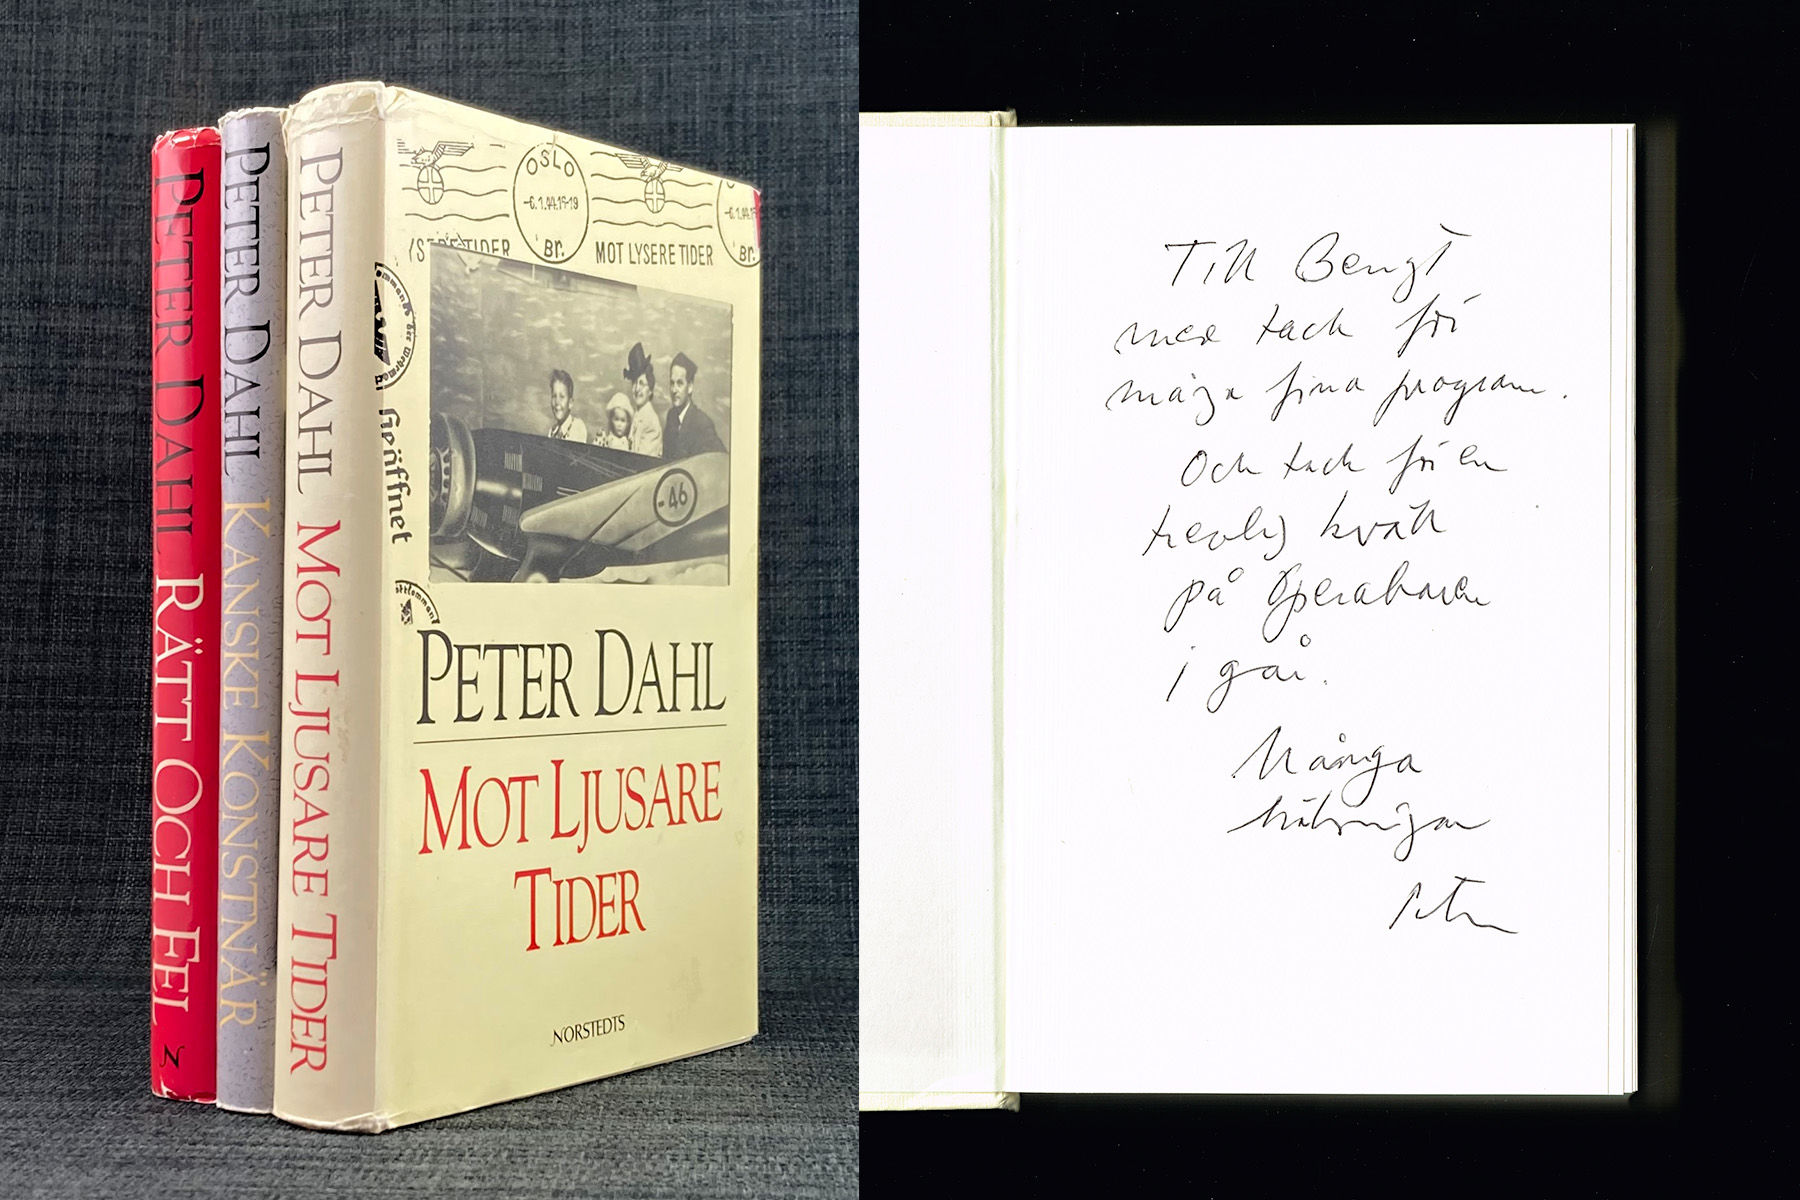 PETER DAHL RÄTT OCH FEL
N
PETER DAHL KANSKE KONSTNÄR
PETER DAHL MOT LJUSARE TIDER
OSLO
-6.1.44.18-19
Br.
MOT LYSERE TIDER
Br.
Geöffnet
46
PETER DAHL
MOT LJUSARE
TIDER
NORSTEDTS
Till Bengt
med tack för
många fina program.
Och tack för en
trevlig kväll
på Operabaren
i går.
Många
hälsningar
Peter